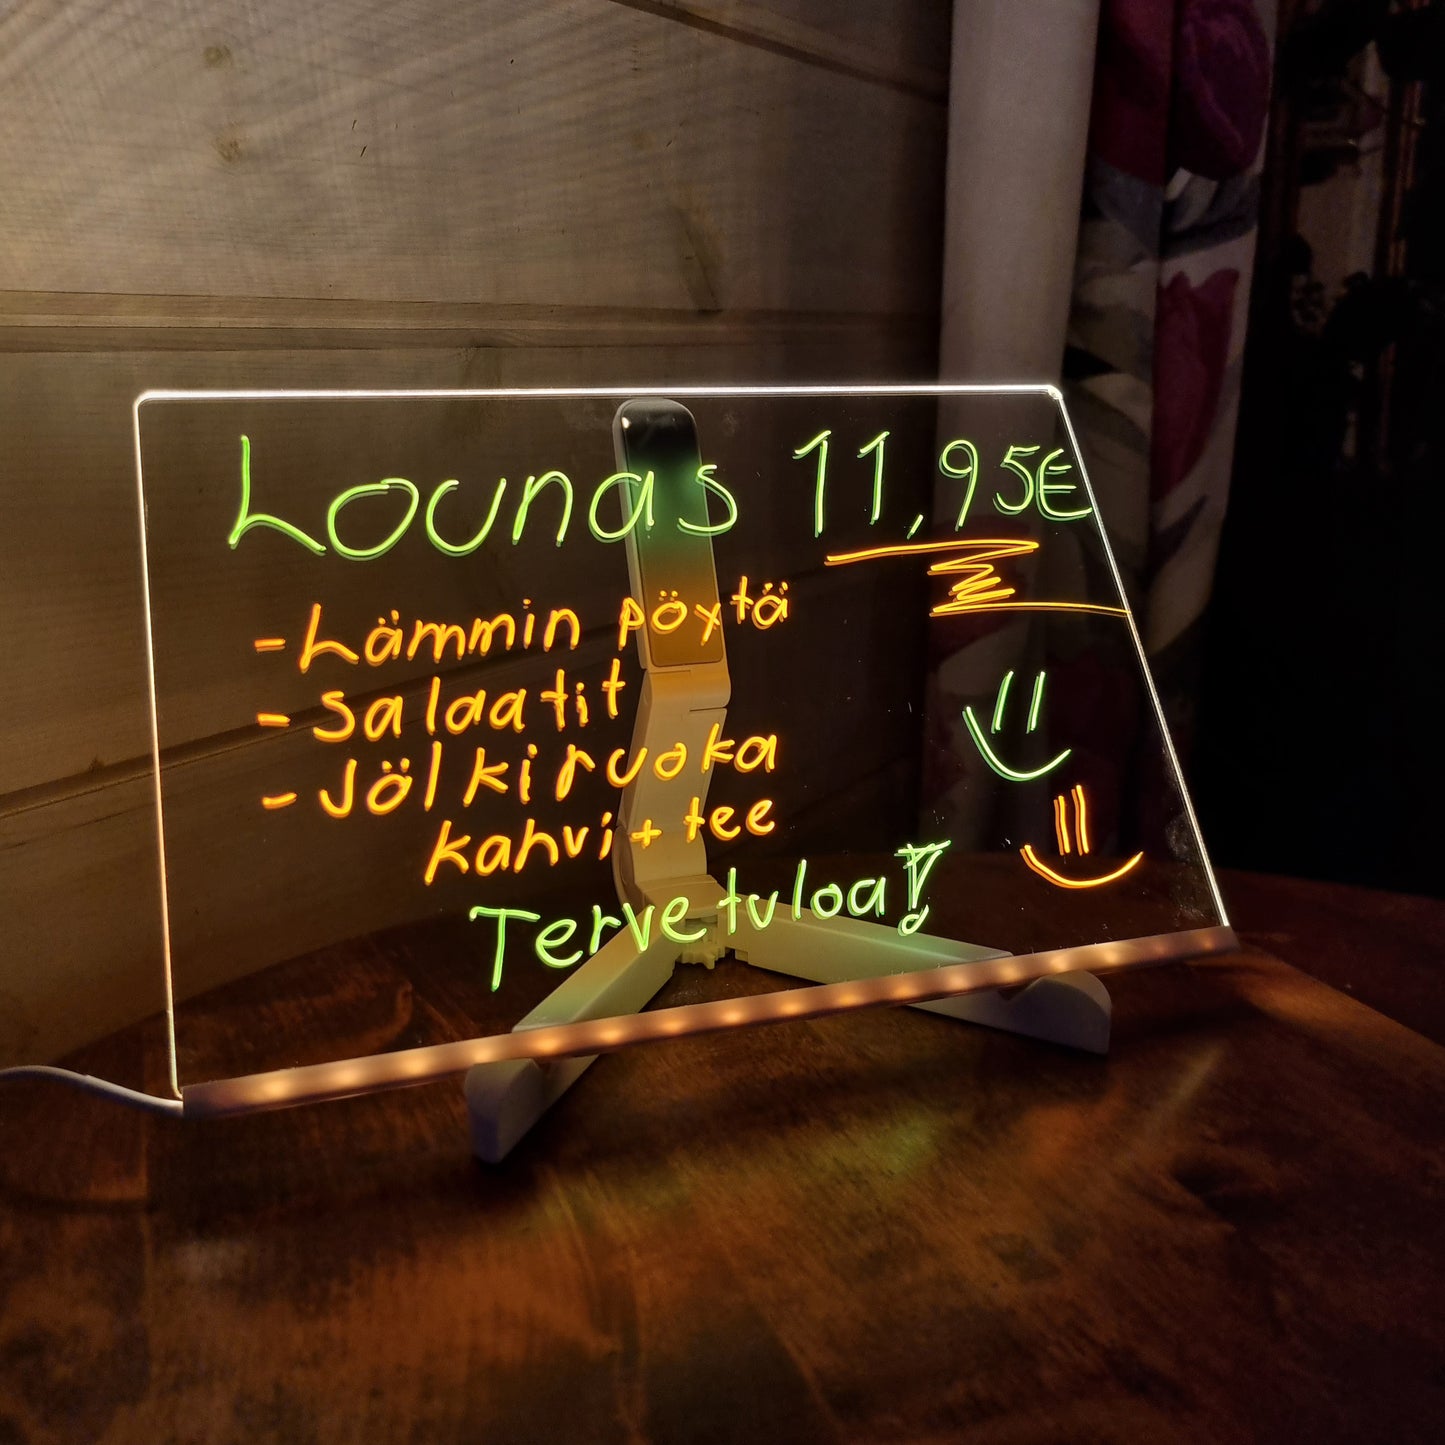 Lounas 11,95€
- Lämmin pöytä
- Salaatit
- Jölkiruoka
kahvi + tee
Tervetuloa!